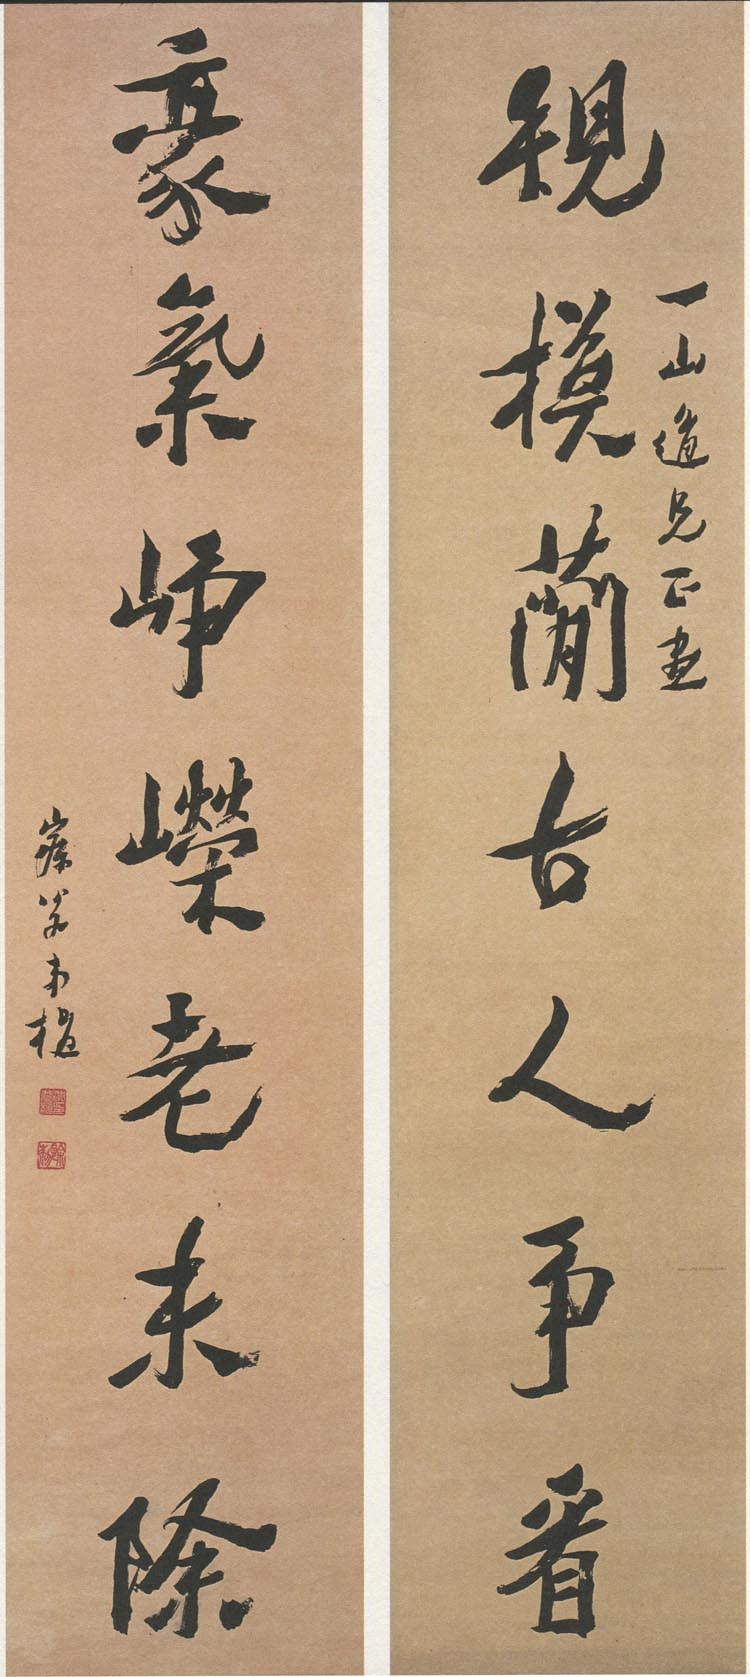 規模蕳古人争看
一山道兄正畫
豪氣崢嶸老未除
寐叟弟植